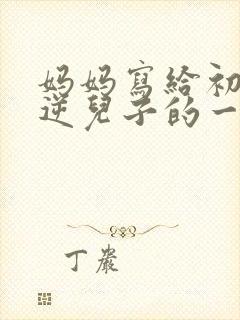 妈妈寫給初
逆兒子的一
丁巖